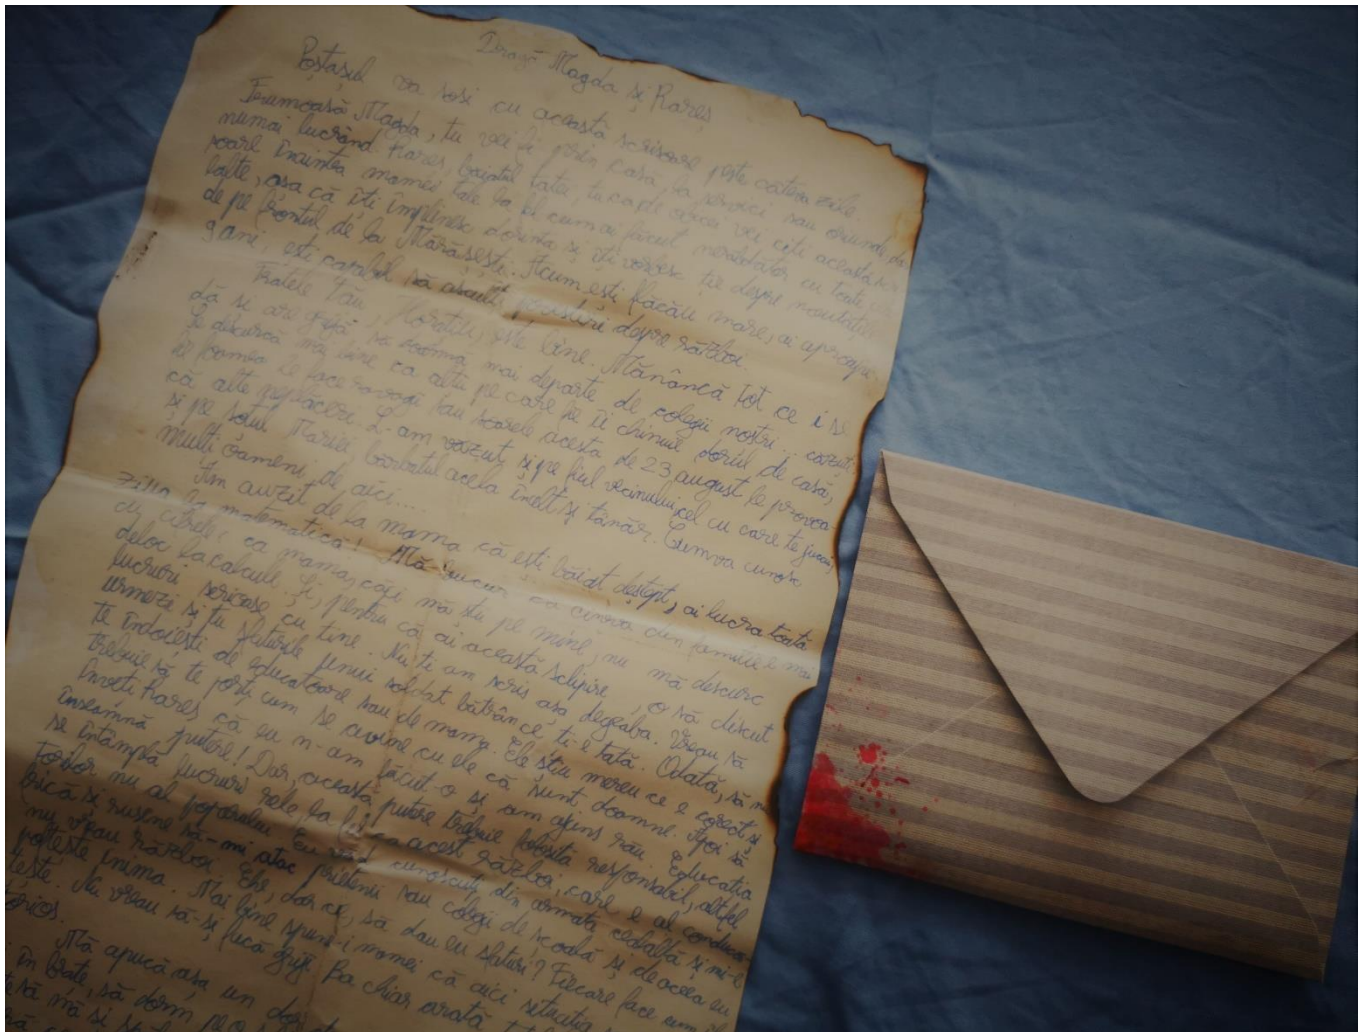 Dragă Magda și Rareș
Poștașul va sosi cu această scrisoare peste câteva zile.
Frumoasă Magda, tu vei fi prin casă, la servici sau oriunde
numai lucrând. Rareș, băiatul tatei, tu ca de obicei vei citi această
soare înaintea mamei tale la fel cum ai făcut nerăbdător cu toate
lalte, așa că îți împlinesc dorința și îți vorbesc ție despre noutățile
de pe frontul de la Mărășești. Acum ești flăcău mare, ai aproape
9 ani, ești capabil să asculți povestiri despre război.
Fratele tău, Horațiu, este bine. Mănâncă tot ce i se
dă și are grijă să doarmă mai departe de colegii noștri... căzuți.
Se descurcă mai bine ca alții pe care fie îi chinuie dorul de casă,
fie foamea le face ravagii sau soarele acesta de 23 august le provoa-
că alte neplăceri. L-am văzut și pe fiul vecinului, cel cu care te jucai,
și pe soțul Mariei, bărbatul acela înalt și tânăr. Cumva cunosc
mulți oameni de aici....
Am auzit de la mama că ești băiat deștept, ai lucra toată
ziua la matematică! Mă bucur că cineva din familie e
cu cifrele; ca mama, căci mă știu pe mine, nu mă descurc
deloc la calcule. Și, pentru că ai această sclipire, o să discut
lucruri serioase cu tine. Nu ți-am scris așa degeaba. Vreau să
urmezi și tu sfaturile unui soldat bătrân ce ți-e tată. Odată, să nu
te îndoiești de educatoare sau de mama. Ele știu mereu ce e corect și
trebuie să te porți cum se cuvine cu ele că sunt doamne. Apoi să
înveți Rareș că eu n-am făcut-o și am ajuns rău. Educația
înseamnă putere! Dar, această putere trebuie folosită responsabil, altfel
se întâmplă lucruri rele la fel ca acest război, care e al conducă-
torilor nu al poporului. Eu văd cunoscuți din armata cealaltă și mi-e
frică și rușine să-mi atac prietenii sau colegii de școală și de aceea eu
nu vreau război. Ehe, dar ce, să dau eu sfaturi? Fiecare face cum îi
poftește inima. Mai bine spune-i mamei că aici situația
Nu vreau să-și facă griji. Ba chiar arată
Mă apucă așa un dor
în brațe, să dorm pe o
să mă